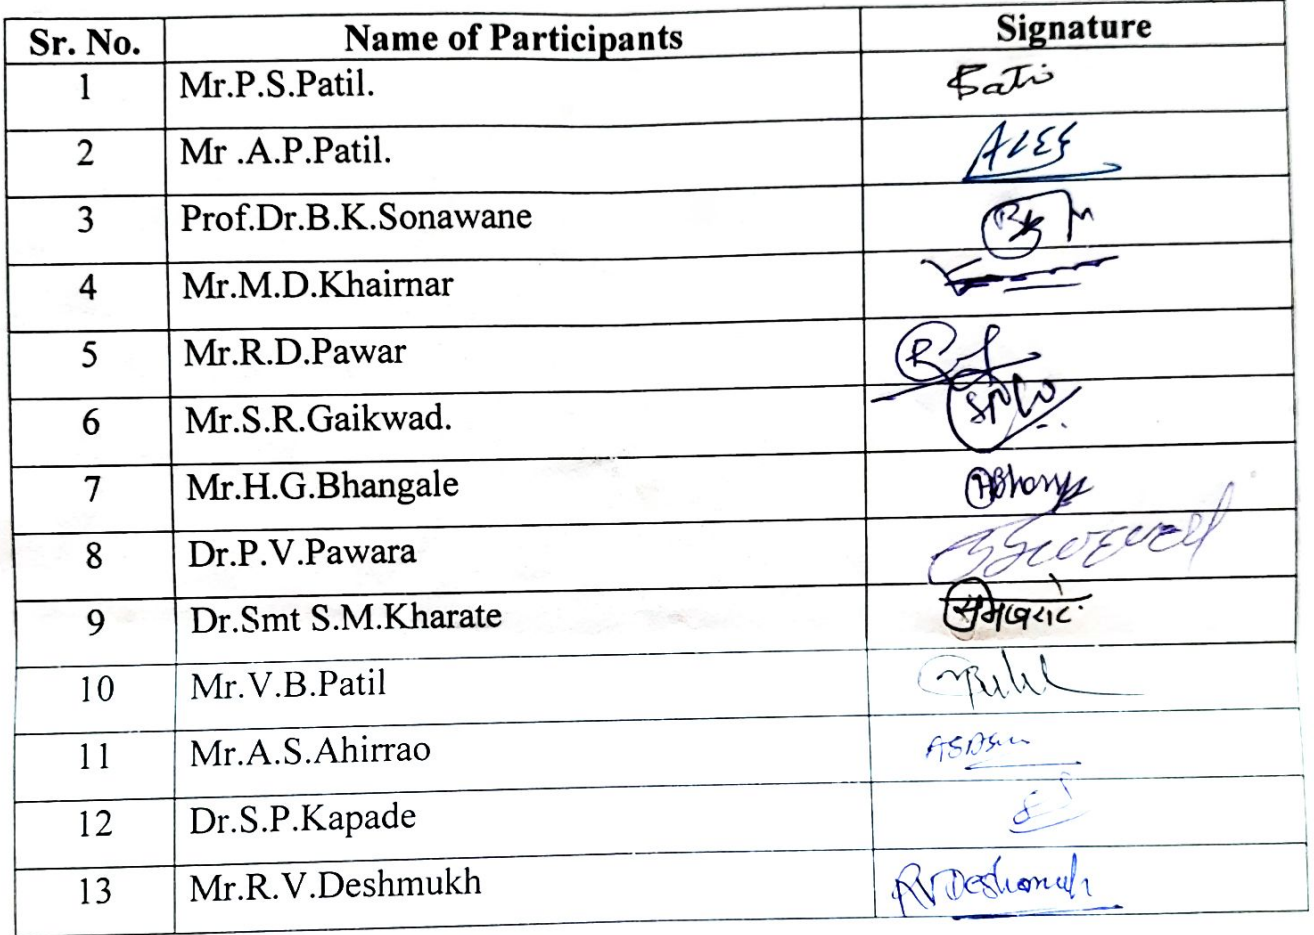 Sr. No. Name of Participants Signature
1 Mr.P.S.Patil.
2 Mr .A.P.Patil.
3 Prof.Dr.B.K.Sonawane
4 Mr.M.D.Khairnar
5 Mr.R.D.Pawar
6 Mr.S.R.Gaikwad.
7 Mr.H.G.Bhangale
8 Dr.P.V.Pawara
9 Dr.Smt S.M.Kharate
10 Mr.V.B.Patil
11 Mr.A.S.Ahirrao
12 Dr.S.P.Kapade
13 Mr.R.V.Deshmukh RVDeshmukh